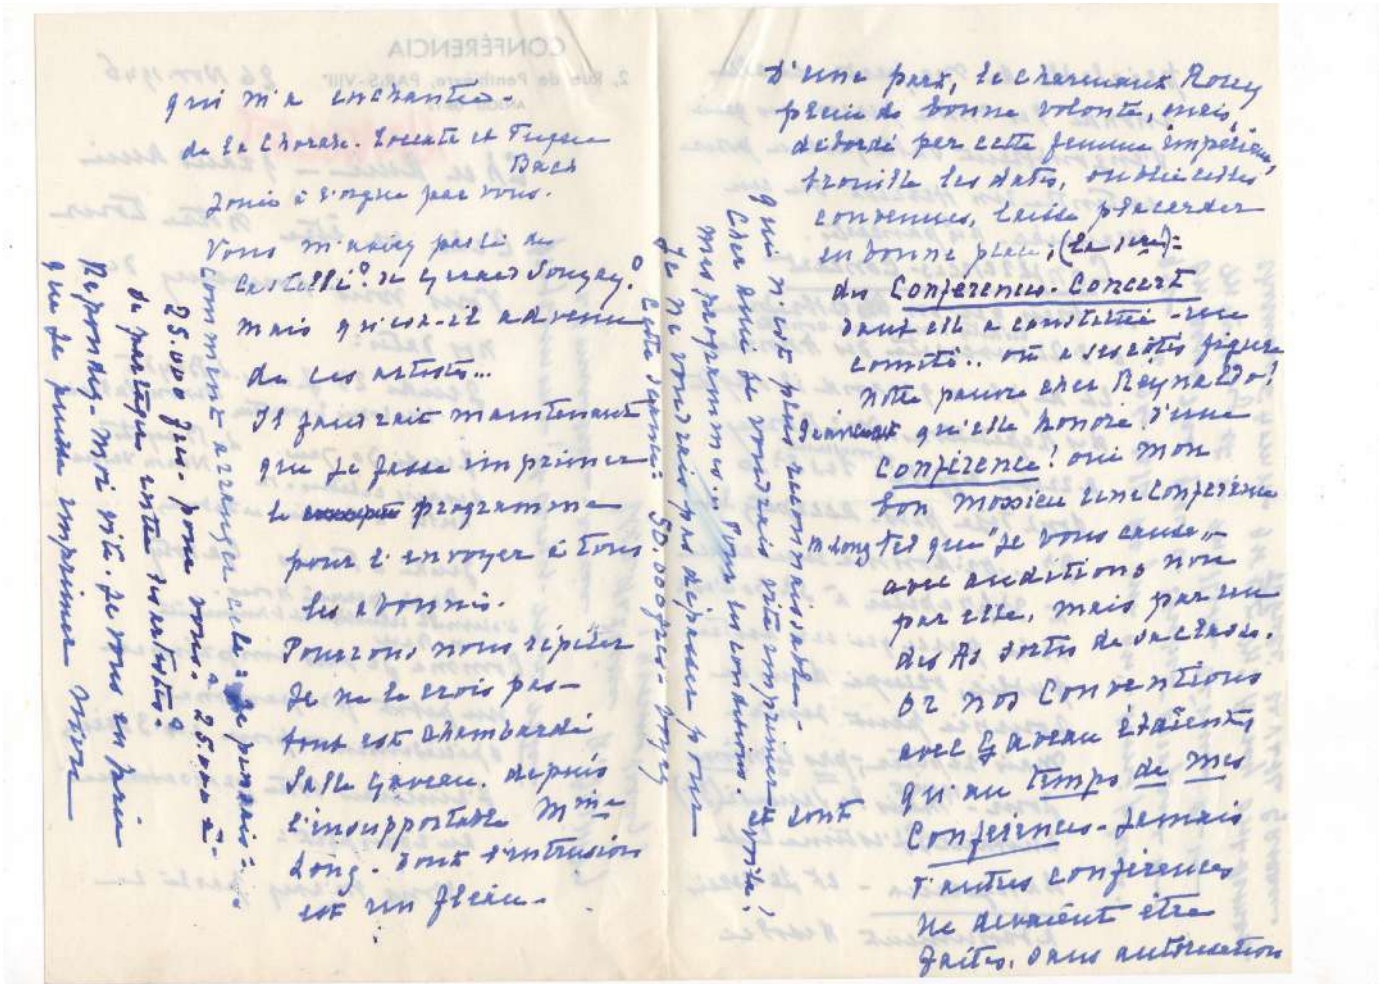 qui m'a enchantée -
de la Chorale. Toccata et Fugue
Bach
Jouée à l'orgue par vous.
Vous m'aviez parlé de
Castelli? de Gérard Souzay?
mais qu'est-il advenu
de ces artistes...
Il faudrait maintenant
que je fasse imprimer
le programme
pour l'envoyer à tous
les abonnés.
Pourrons nous répéter
Je ne le crois pas -
tout est chambardé
Salle Gaveau. depuis
l'insupportable Mme
Long - dont l'intrusion
est un fléau -
Comment arranger cela: Je pensais:
25.000 frs - pour vous. 25.000 à
partager entre les artistes?
Répondez-moi vite. Je vous en prie
que je puisse imprimer
D'une part, le charmant Rouy
plein de bonne volonté, mais,
débordé par cette femme impérieuse,
brouille les dates, oublie celles
convenues, laisse placarder
en bonne place,
des Conférences-Concert
dont elle a constitué une
comité.. où à ses côtés figure
notre pauvre cher Reynaldo!
qu'elle honore d'une
Conférence! oui mon
bon Mossieu une Conférence
M. Long tel que "je vous cause"..
avec auditions non
par elle, mais par un
des As sortis de sa classe.
Or nos Conventions
avec Gaveau étaient
qu'au temps de mes
Conférences - Jamais
d'autres conférences
ne devaient être
faites, sans autorisation
qui n'est plus reconnaissable -
Cher ami je voudrais vite imprimer
mes programmes.. Pour les conditions.
Je ne voudrais pas dépasser pour
cette séance: 50.000 frs -